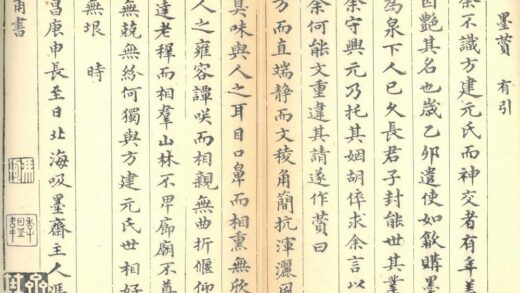 墨贊 有引
余不識方建元氏而神交者有年盖
因艷其名也歲乙卯遣使如歙購墨
為泉下人已久長君子封能世其業
余守興元乃托其姻胡倅求余言以
余何能文重違其請遂作贊曰
方而直端静而文稜角簡抗渾灑風
臭味與人之耳目口鼻而相熏無欣
人之雍容譚咲而相親無曲折偃仰
達老穉而相羣山林不畀廊廟不尊
無兢無紛何獨與方建元氏世相好
無垠 時
昌庚申長至日北海吸墨齋主人馮
甫書